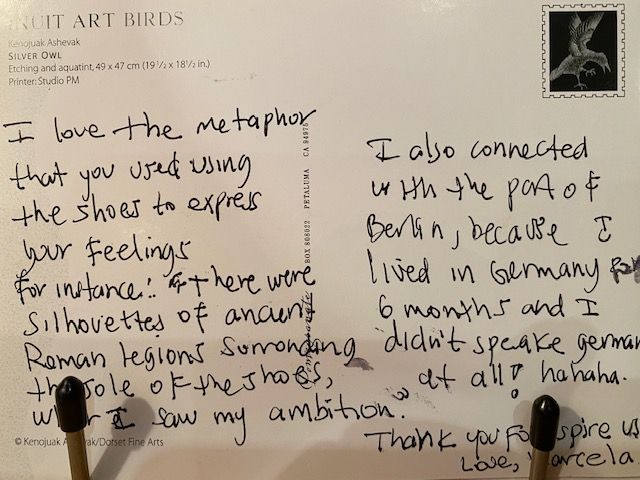 INUIT ART BIRDS
Kenojuak Ashevak
SILVER OWL
Etching and aquatint, 49 x 47 cm (19 1/2 x 18 1/2 in.)
Printer: Studio PM
I love the metaphor
that you used using
the shoes to express
your feelings
for instance: "there were
silhouettes of ancient
Roman legions surronding
the sole of the shoes,
I saw my ambition."
© Kenojuak Ashevak/Dorset Fine Arts
BOX 808022 PETALUMA CA 94975
I also connected
with the part of
Berlin, because I
lived in Germany for
6 months and I
didn't speake german
at all! hahaha.
Thank you
Love, Marcela